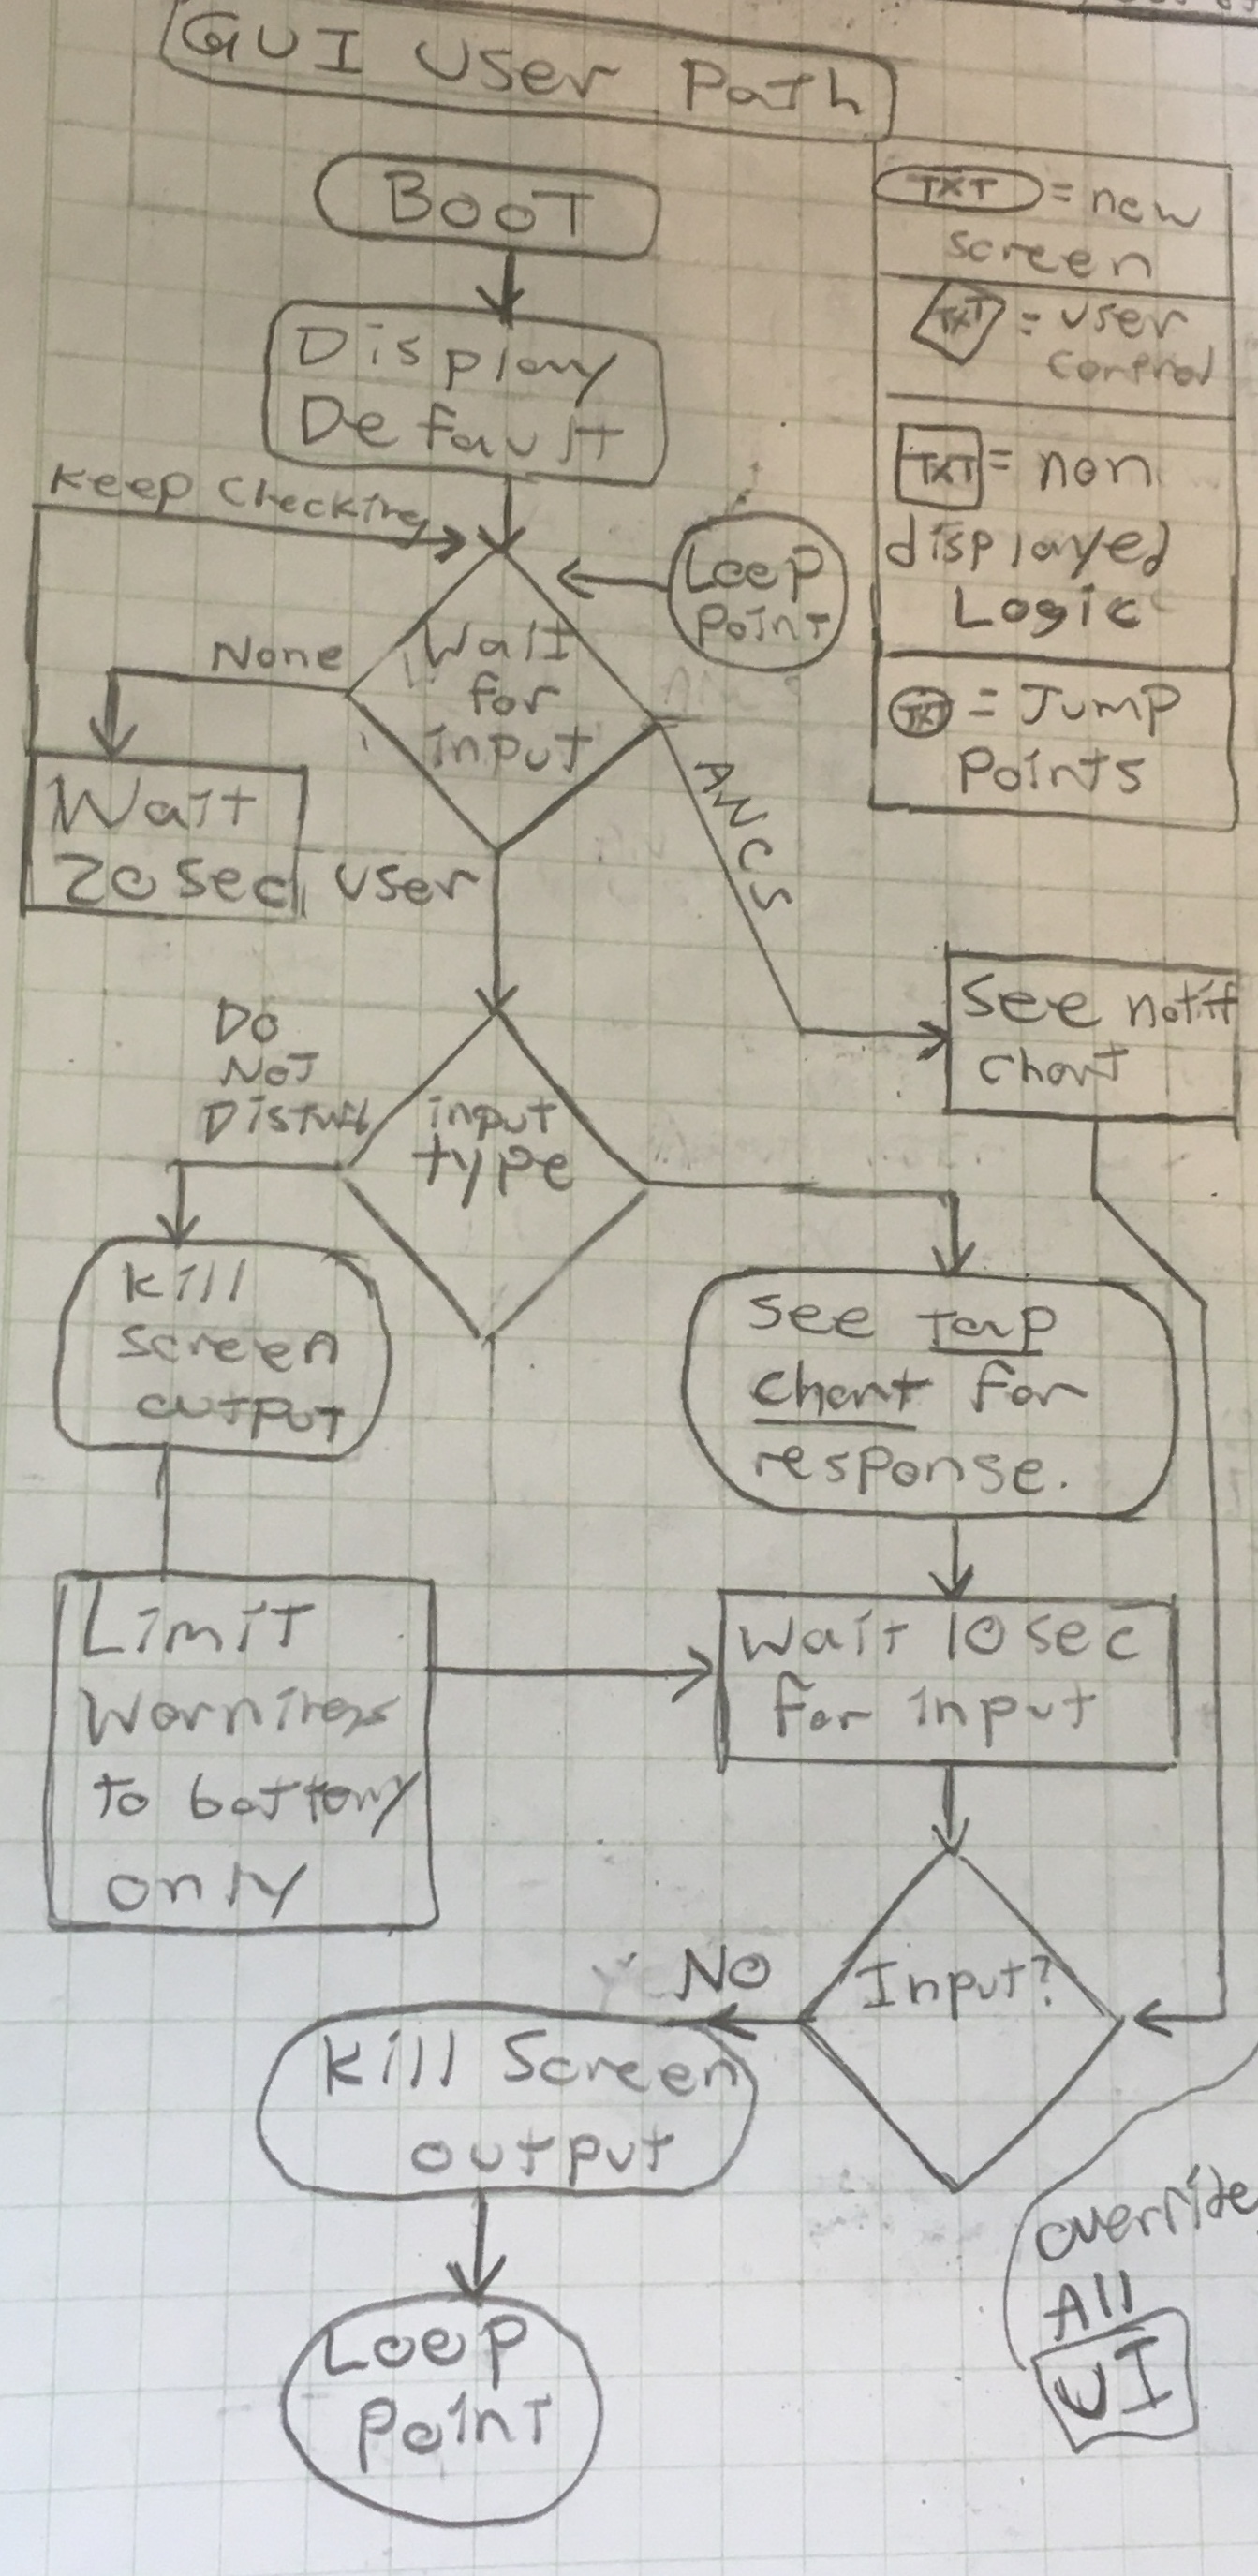 GUI User Path
BOOT
TXT = new
screen
TXT = user
control
TXT = non
displayed
Logic
TXT = Jump
Points
Display
Default
Keep Checking
Loop
Point
None
Wait
for
input
ANCS
Wait
20 sec
user
See notif
chart
Do
Not
Disturb
input
type
Kill
screen
output
See Tap
chart for
response.
Limit
Warnings
to battery
only
Wait 10 sec
for input
Input?
NO
Kill Screen
output
override
All
UI
Loop
Point